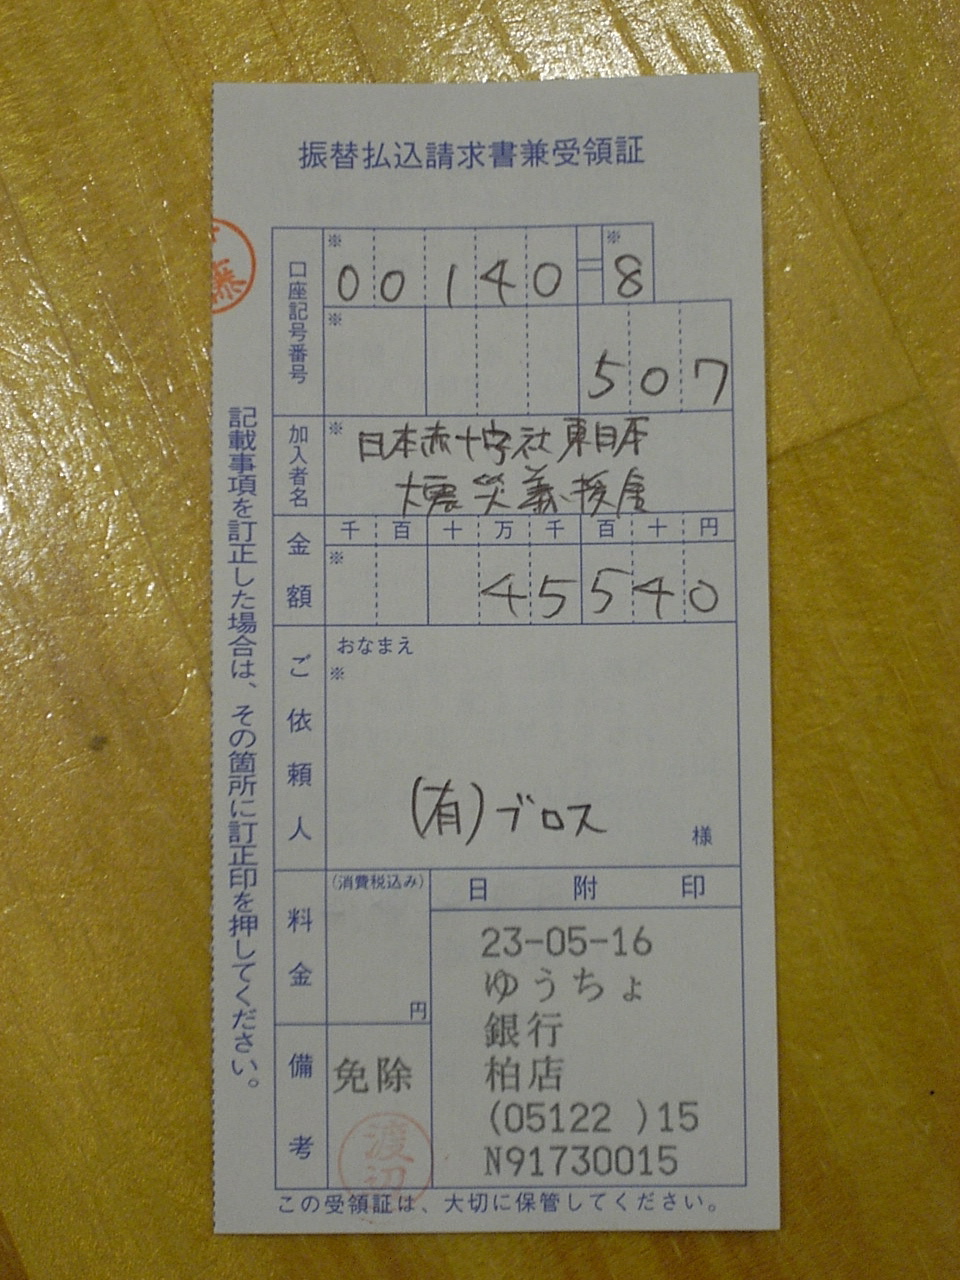 振替払込請求書兼受領証
口座記号番号
※ ※
00140=8
※
507
加入者名
※
日本赤十字社東日本
大震災義援金
金額
千百十万千百十円
※
45540
ご依頼人
おなまえ
※
(有)ブロス
様
料金
(消費税込み)
円
日附印
23-05-16
ゆうちょ
銀行
柏店
(05122 )15
N91730015
備考
免除
渡辺
この受領証は、大切に保管してください。
記載事項を訂正した場合は、その箇所に訂正印を押してください。